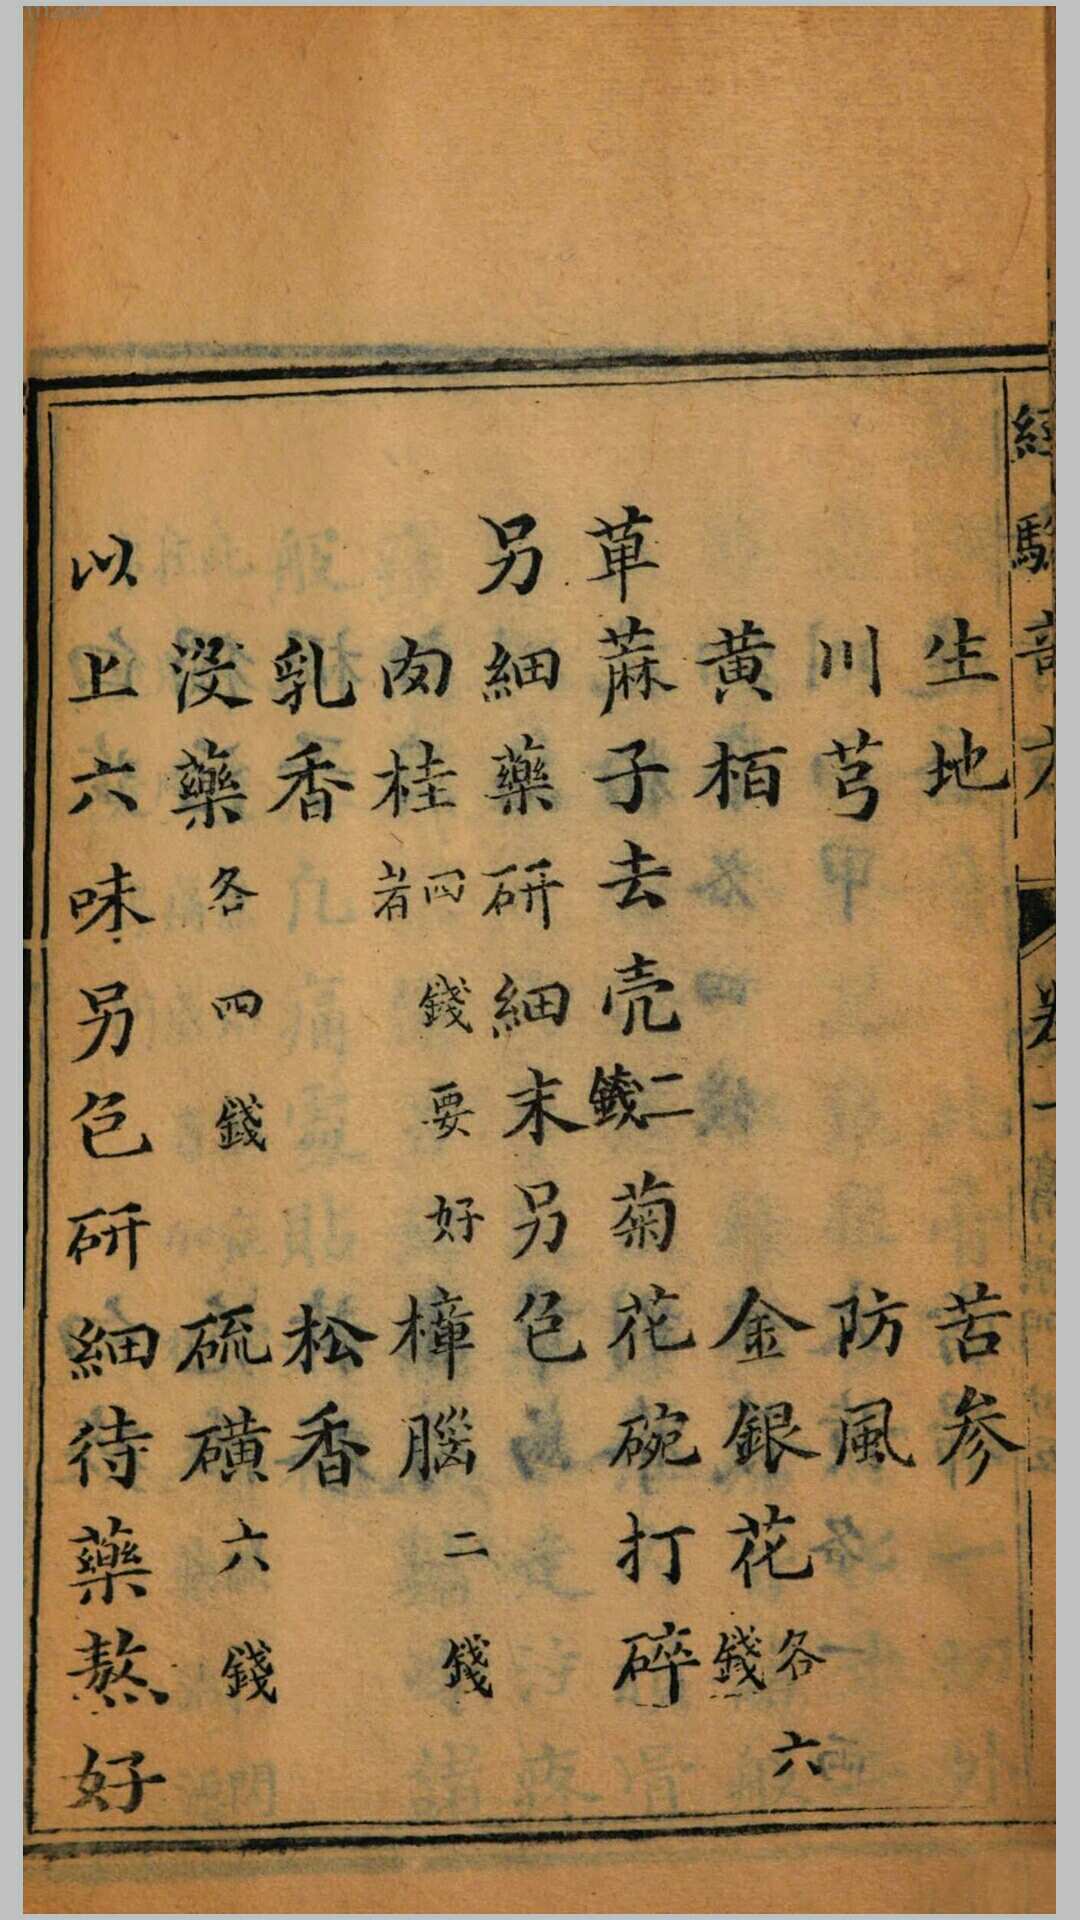 生地　苦参
川芎　防風
黄栢　金銀花各六錢
萆蔴子去壳二錢菊花碗打碎
另細藥研細末另包
肉桂四錢要好者　樟腦二錢
乳香　松香
没藥各四錢　硫磺六錢
以上六味另包研細待藥熬好